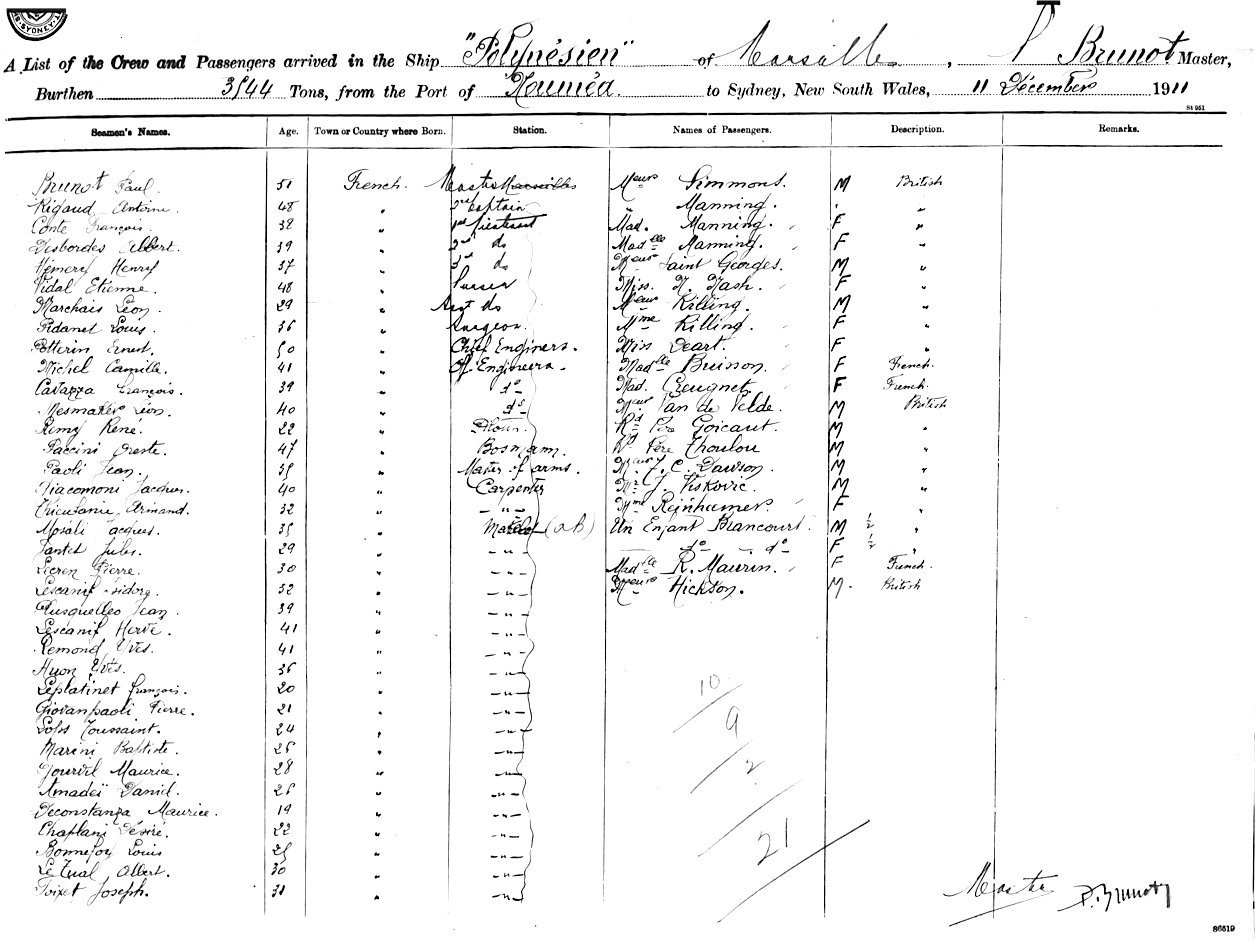 SYDNEY
A List of the Crew and Passengers arrived in the Ship "Polynésien" of Marseille, P Brunot Master,
Burthen 3544 Tons, from the Port of Nouméa to Sydney, New South Wales, 11 Décember 1911
St 951
Seamen's Names. Age. Town or Country where Born. Station. Names of Passengers. Description. Remarks.
Brunot Paul. 51 French. Master Marseilles Meur Simmons. M British
Rigaud Antoine. 48 " 2nd Captain " Manning. " "
Conte François. 32 " 1st Lieutenant Mad. Manning. F "
Desbordes Albert. 39 " 2nd do Madelle Manning. F "
Hémery Henry 37 " 3rd do Meur Saint Georges. M "
Vidal Etienne. 48 " Purser Miss. N. Nash. F "
Marchais Léon. 29 " Asst do Meur Killing. M "
Pidanet Louis. 36 " Surgeon. Mme Killing. F "
Potterin Ernest. 50 " Chief Enginers. Miss Deart. F "
Michel Camille. 41 " Of Engineers. Madelle Buisson. F French.
Cavazza François. 39 " do Mad. Creugnet F French.
Mesmaker Léon. 40 " do Meur Van de Velde. M British
Remy René. 22 " Rd Père Goicaut. M "
Paccini Oreste. 47 " Bosmann. Rd Père Thoulou M "
Paoli Jean. 35 " Master of arms. Meur J. C. Dawson. M "
Giacomoni Jacques. 40 " Carpenter Mr J. Viskovic. M "
Armand. 32 " - " - Mme Reinhamer F "
Morali Jacques. 35 " (ab) Un Enfant Brancourt. M 1/2 "
Jantet Jules. 29 " - " - do do F 1/2 "
Lecren Pierre. 30 " - " - Madelle R. Maurin. F French.
Lescanif Isidore. 32 " - " - Meur Hickson. M. British
Plusquelleo Jean. 39 " - " -
Lescanif Hervé. 41 " - " -
Remond Yves. 41 " - " -
Huon Yvès. 36 " - " -
Leplatinet François. 20 " - " -
Giovanpaoli Pierre. 21 " - " -
Toussaint. 24 " - " -
Marini Baptiste. 25 " - " -
Gourvil Maurice. 28 " - " -
Amadeï Daniel. 26 " - " -
Deconstanza Maurice. 19 " - " -
Chaplani Désiré. 22 " - " -
Bonnefoy Louis 25 " - " -
Le Tual Albert. 30 " - " -
Toixet Joseph. 31 " - " -
10
9
2
21
Master P. Brunot
86519